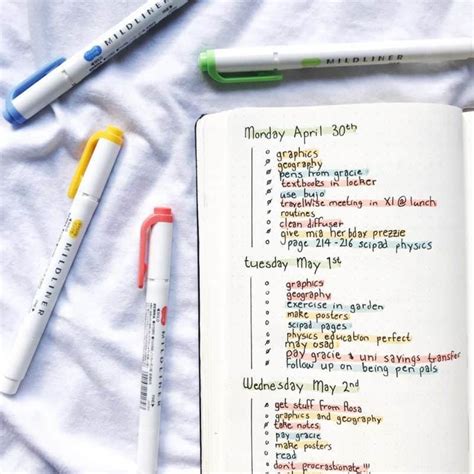 MILDLINER
MILDLINER
MILDLINER
MILDLINER
Monday April 30th
graphics
geography
pens from gracie
textbooks in locker
use bujo
travelwise meeting in X1 @ lunch
routines
clean diffuser
give mia her bday prezzie
page 214-216 scipad physics
tuesday May 1st
graphics
geography
exercise in garden
make posters
scipad pages
physics education perfect
may osad
pay gracie & uni savings transfer
follow up on being pen pals
Wednesday May 2nd
get stuff from Rosa
graphics and geography
take notes
pay gracie
make posters
read
don't procrastinate!!!